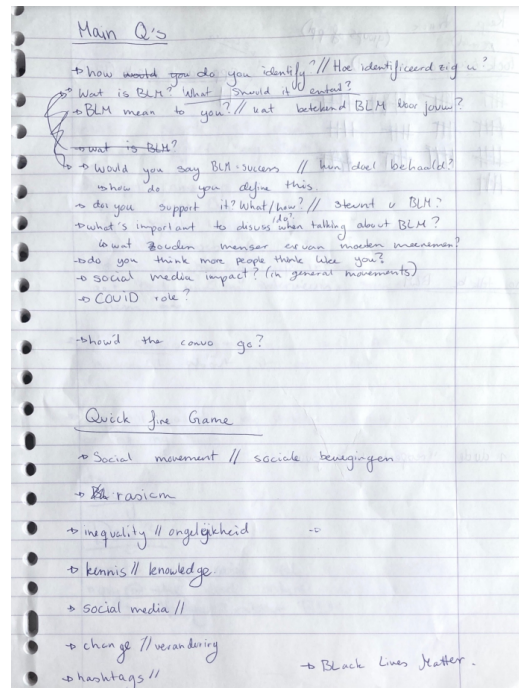 Main Q's
→ how would you do you identify? // Hoe identificeerd zig u?
→ Wat is BLM? What should it entail?
→ BLM mean to you? // wat betekend BLM voor jouw?
→ wat is BLM?
→ Would you say BLM success // hun doel behaald?
↳ how do you define this
→ do you support it? What/how? // steunt u BLM?
→ what's important to discuss /do? when talking about BLM?
↳ wat zouden mensen ervan moeten meenemen?
→ do you think more people think like you?
→ social media impact? (in general movements)
→ COVID role?
→ how'd the convo go?
Quick fire Game
→ Social movement // sociale bewegingen
→ rasicm
→ inequality // ongelijkheid
→ kennis // knowledge
→ social media //
→ change // verandering
→ Black Lives Matter.
→ hashtags //